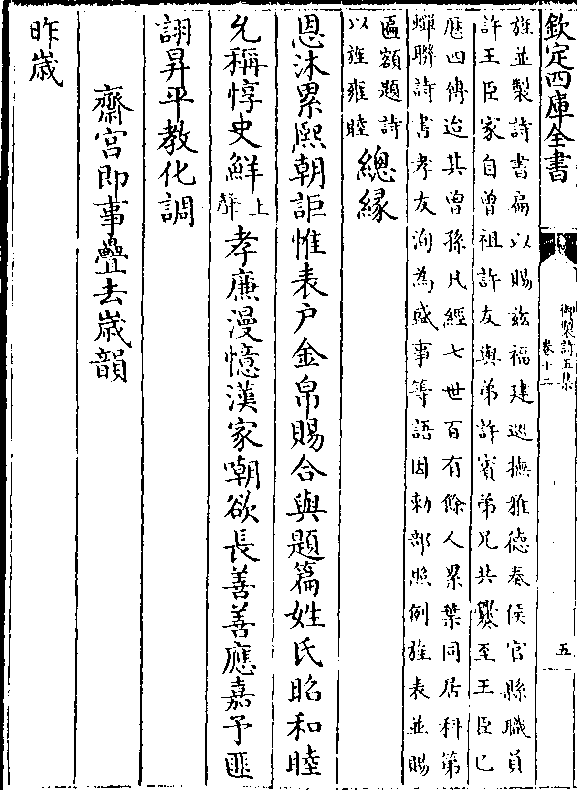 欽定四庫全書
御製詩五集
卷十二
五
旌並製詩書扁以賜玆福建巡撫雅德奏侯官縣職員
許王臣家自曾祖許友與弟許賓弟兄共爨至王臣已
歴四傳迨其曾孫凡經七世百有餘人累葉同居科第
蟬聯詩書孝友洵為盛事等語因勅部照例旌表並賜
匾額題詩
以旌雍睦
總緣
恩沐累熙朝詎惟表户金帛賜合與題篇姓氏昭和睦
允稱惇史鮮
上
聲
孝廉漫憶漢家嘲欲長善善應嘉予匪
詡昇平教化調
齋宫即事疊去歲韻
昨歲